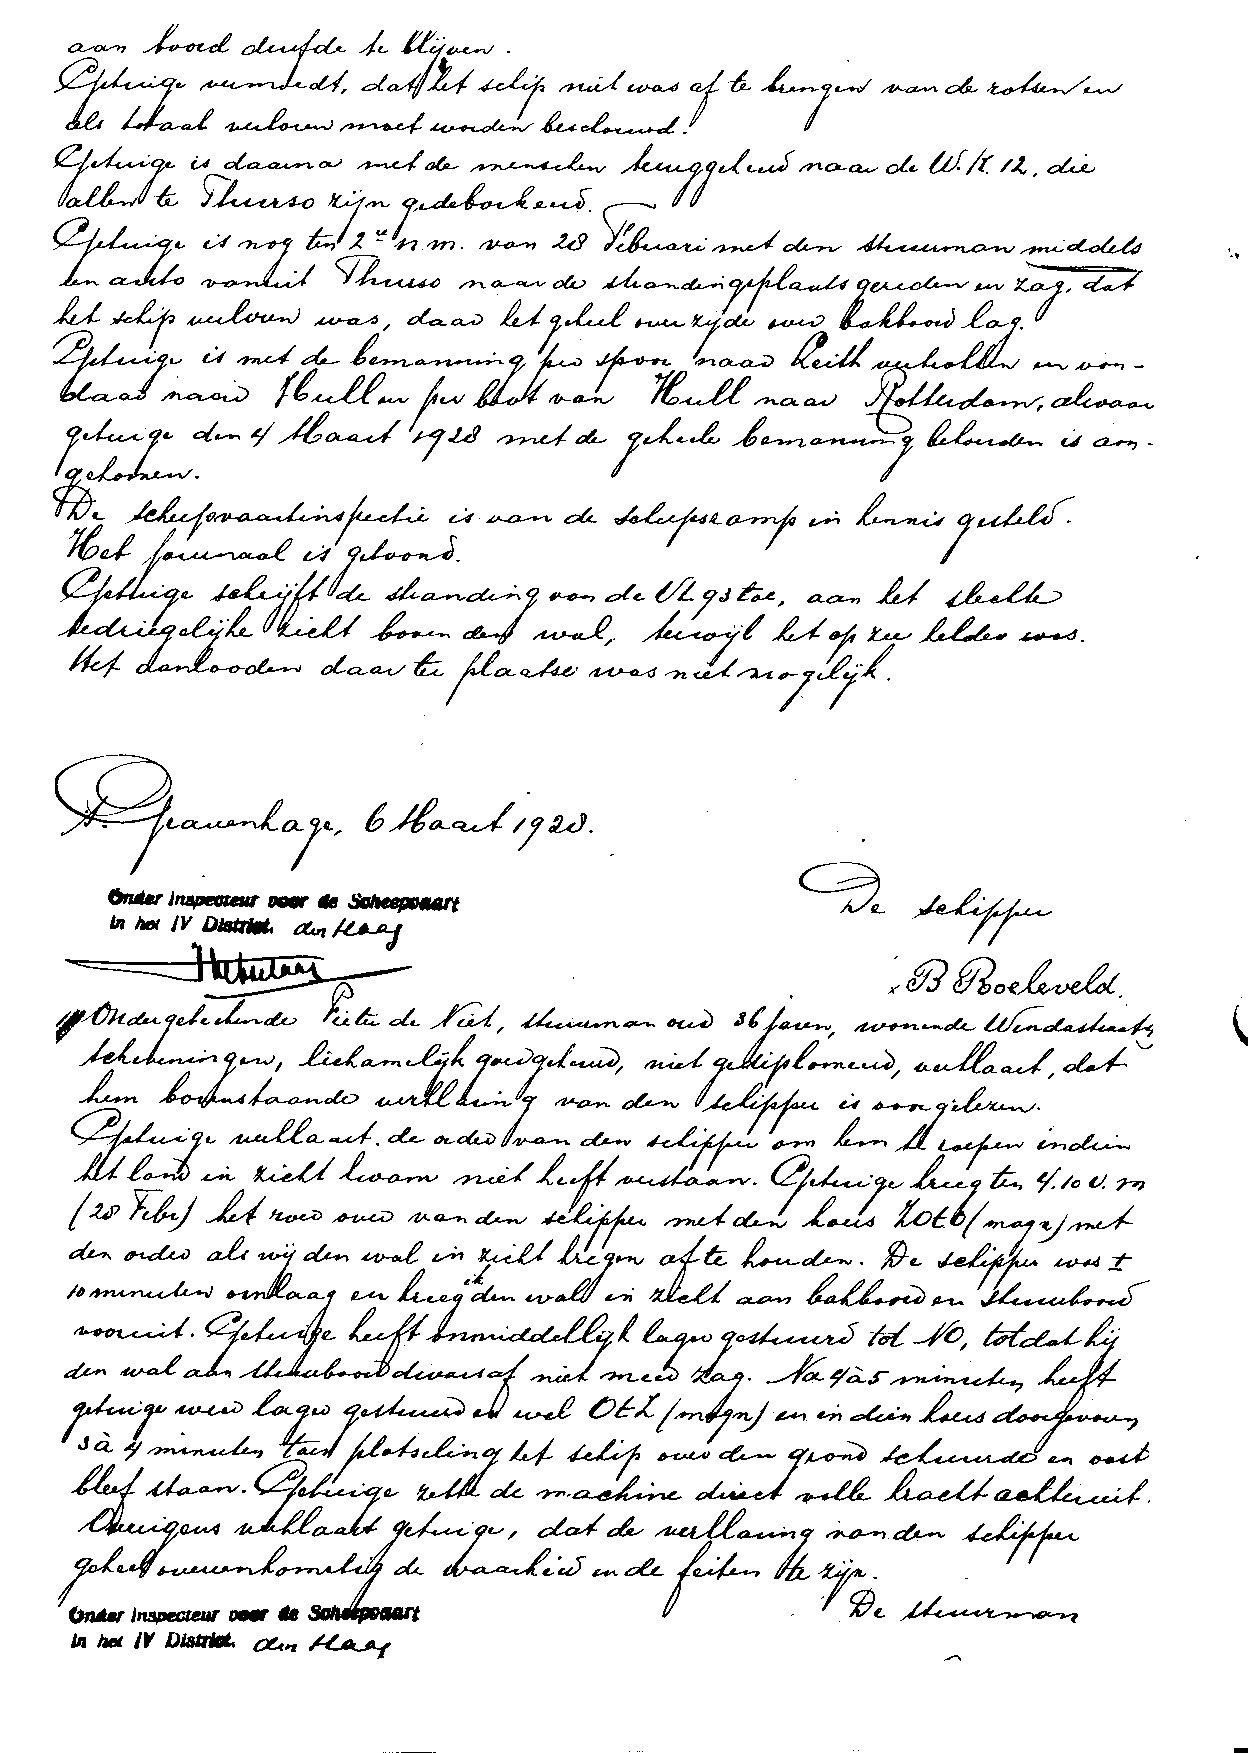 aan boord durfde te blijven.
Getuige vermoedt, dat het schip niet was af te brengen van de rotsen en
als totaal verloren moet worden beschouwd.
Getuige is daarna met de menschen teruggekeerd naar de W.K. 12, die
allen te Thurso zijn gedebarkeerd.
Getuige is nog ten 2 u n.m. van 28 Februari met den stuurman middels
een auto vanuit Thurso naar de strandingsplaats gereden en zag, dat
het schip verloren was, daar het geheel over zijde over bakboord lag.
Getuige is met de bemanning per spoor naar Leith vertrokken en van-
daar naar Hull en per boot van Hull naar Rotterdam, alwaar
getuige den 4 Maart 1928 met de geheele bemanning behouden is aan-
gekomen.
De scheepvaartinspectie is van de scheepsramp in kennis gesteld.
Het journaal is getoond.
Getuige schrijft de stranding van de VL 93 toe, aan het slechte
bedriegelijke zicht boven den wal, terwijl het op zee helder was.
Het aanlooden daar ter plaatse was niet mogelijk.
's Gravenhage, 6 Maart 1928.
Onder Inspecteur voor de Scheepvaart
in het IV District. den Haag
De schipper
x B Roeleveld.
Ondergeteekende Pieter de Niet, stuurman oud 36 jaren, wonende Wendastraat
Scheveningen, lichamelijk goedgekeurd, niet gediplomeerd, verklaart, dat
hem bovenstaande verklaring van den schipper is voorgelezen.
Getuige verklaart de order van den schipper om hem te roepen indien
het land in zicht kwam niet heeft verstaan. Getuige kreeg ten 4.10 v.m
(28 Febr) het roer over van den schipper met den koers ZOtO (magn) met
den order als wij den wal in zicht kregen af te houden. De schipper was ±
10 minuten omlaag en kreeg ik den wal in zicht aan bakboord en stuurboord
vooruit. Getuige heeft onmiddellijk lager gestuurd tot NO, totdat hij
den wal aan stuurboord dwarsaf niet meer zag. Na 4 à 5 minuten heeft
getuige weer lager gestuurd en wel OtZ (magn) en in dien koers doorgevaren
3 à 4 minuten toen plotseling het schip over den grond schuurde en vast
bleef staan. Getuige zette de machine direct volle kracht achteruit.
Overigens verklaart getuige, dat de verklaring van den schipper
geheel overeenkomstig de waarheid en de feiten te zijn.
De stuurman
Onder Inspecteur voor de Scheepvaart
in het IV District. den Haag